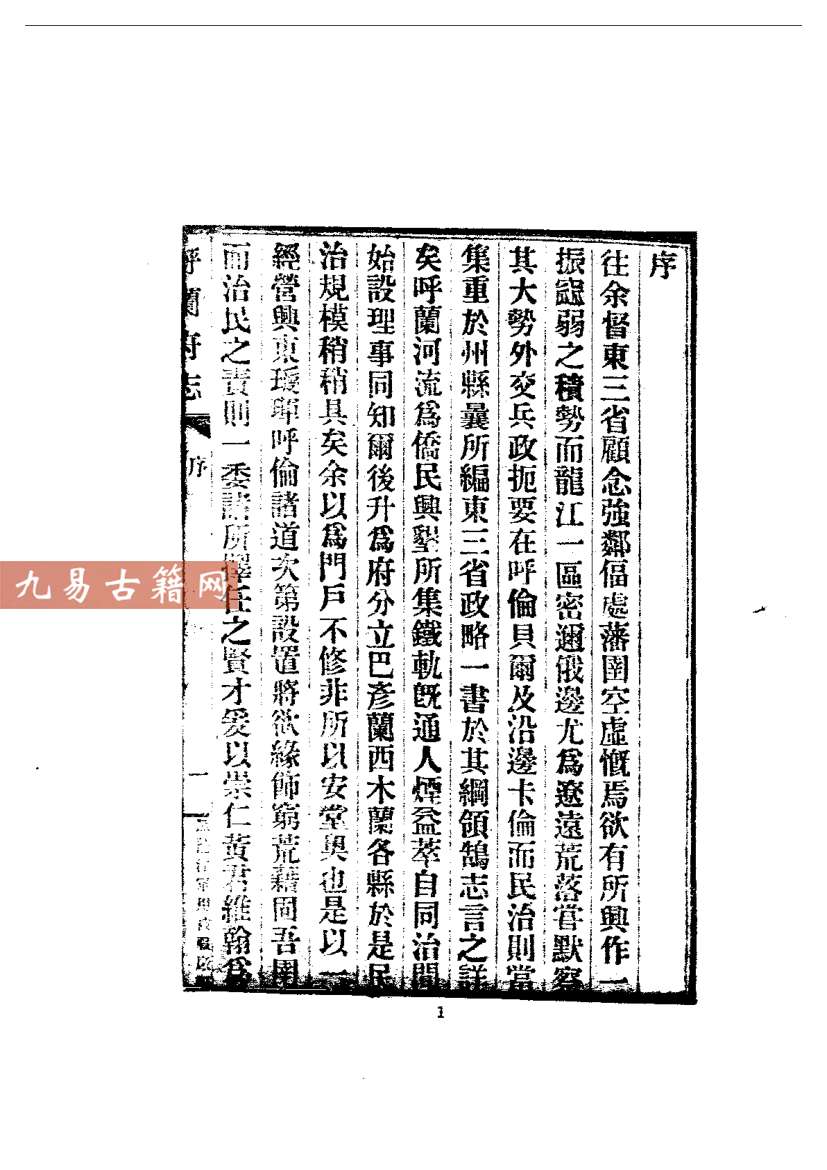 序
往余督東三省顧念強鄰偪處藩圉空虛慨焉欲有所興作一
振寙弱之積勢而龍江一區密邇俄邊尤爲遼遠荒落嘗默察
其大勢外交兵政扼要在呼倫貝爾及沿邊卡倫而民治則當
集重於州縣曩所編東三省政略一書於其綱領鵠志言之詳
矣呼蘭河流爲僑民興墾所集鐵軌旣通人煙益萃自同治間
始設理事同知爾後升爲府分立巴彥蘭西木蘭各縣於是民
治規模稍稍具矣余以爲門戶不修非所以安堂奧也是以一
經營興東璦琿呼倫諸道次第設置將欲緣飾窮荒藉固吾圉
而治民之責則一委諸所擇任之賢才爰以崇仁黃君維翰爲
呼蘭府志
序
一
九易古籍网
1